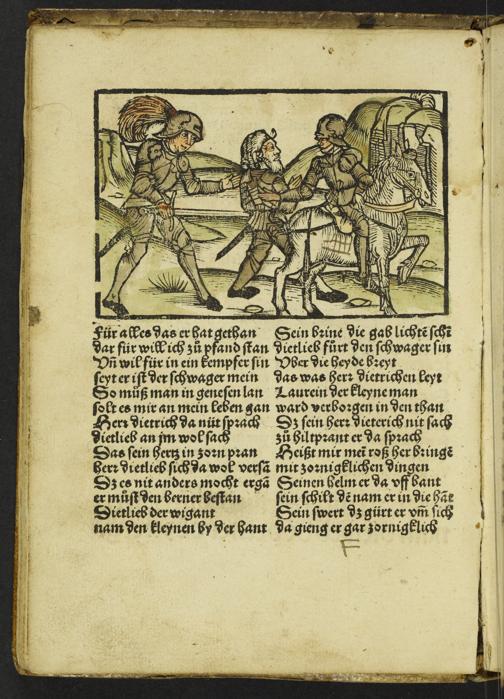 Für alles das er hat gethan
dar für will ich zů pfand stan
Vñ wil für in ein kempfer sin
seyt er ist der schwager mein
So můß man in genesen lan
solt es mir an mein leben gan
Herr dietrich da nüt sprach
dietlieb an jm wol sach
Das sein hertz in zorn pran
herr dietlieb sich da wol versã
Dz es nit anders mocht ergã
er můst den berner bestan
Dietlieb der wigant
nam den kleynen by der hant
Sein brine die gab lichtẽ schĩ
dietlieb fürt den schwager sin
Vber die heyde breyt
das was herr dietrichen leyt
Laurein der kleyne man
ward verborgen in den than
Dz sein herr dieterich nit sach
zů hiltprant er da sprach
Heißt mir meĩ roß her bringẽ
mit zornigklichen dingen
Seinen helm er da vff bant
sein schilt dẽ nam er in die hãt
Sein swert dz gürt er vm̃ sich
da gieng er gar zornigklich
F